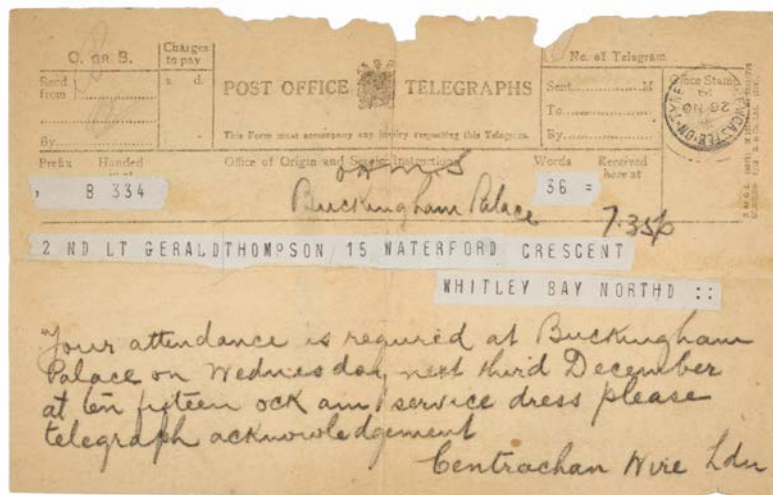 O. or B.
Charges to pay
s. d.
Recd from
By
POST OFFICE TELEGRAPHS
This Form must accompany any inquiry respecting this Telegram.
No. of Telegram
Sent M
To
By
Office Stamp
NEWCASTLE-ON-TYNE
26 NO
Prefix Handed in at
Office of Origin and Service Instructions
Words Received here at
OHMS
B 334
36 =
Buckingham Palace
7.35p
2 ND LT GERALDTHOMPSON 15 WATERFORD CRESCENT
WHITLEY BAY NORTHD ::
Your attendance is required at Buckingham
Palace on Wednesday next third December
at ten fifteen ock am service dress please
telegraph acknowledgement
Centrachan Wire Ldn